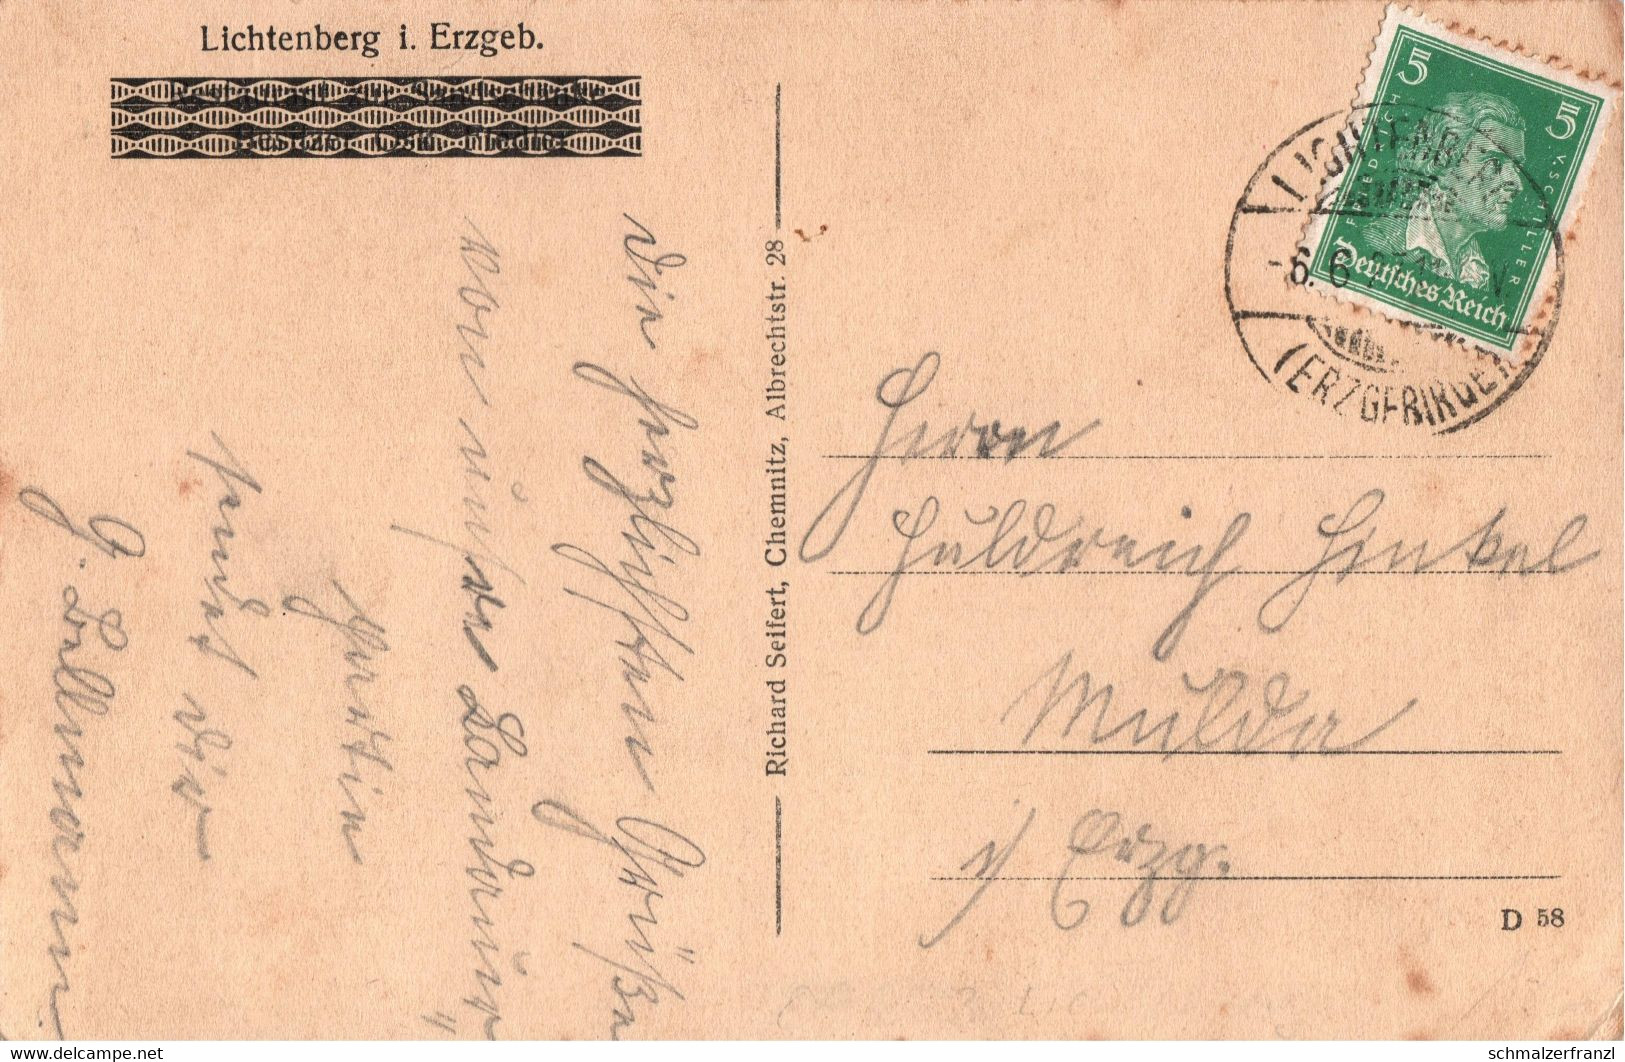 Lichtenberg i. Erzgeb.
Besitzer
die herzlichsten Grüße
von unser
Partie
sendet dir
G. Bellmann
Richard Seifert, Chemnitz, Albrechtstr. 28
5
5
FRIEDRICH V. SCHILLER
Deutsches Reich
LICHTENBERG
6. 6.
(ERZGEBIRGE)
Herrn
Huldreich Henkel
Mulda
i/ Erzg.
D 58
https://www.delcampe.net
schmalzerfranzl